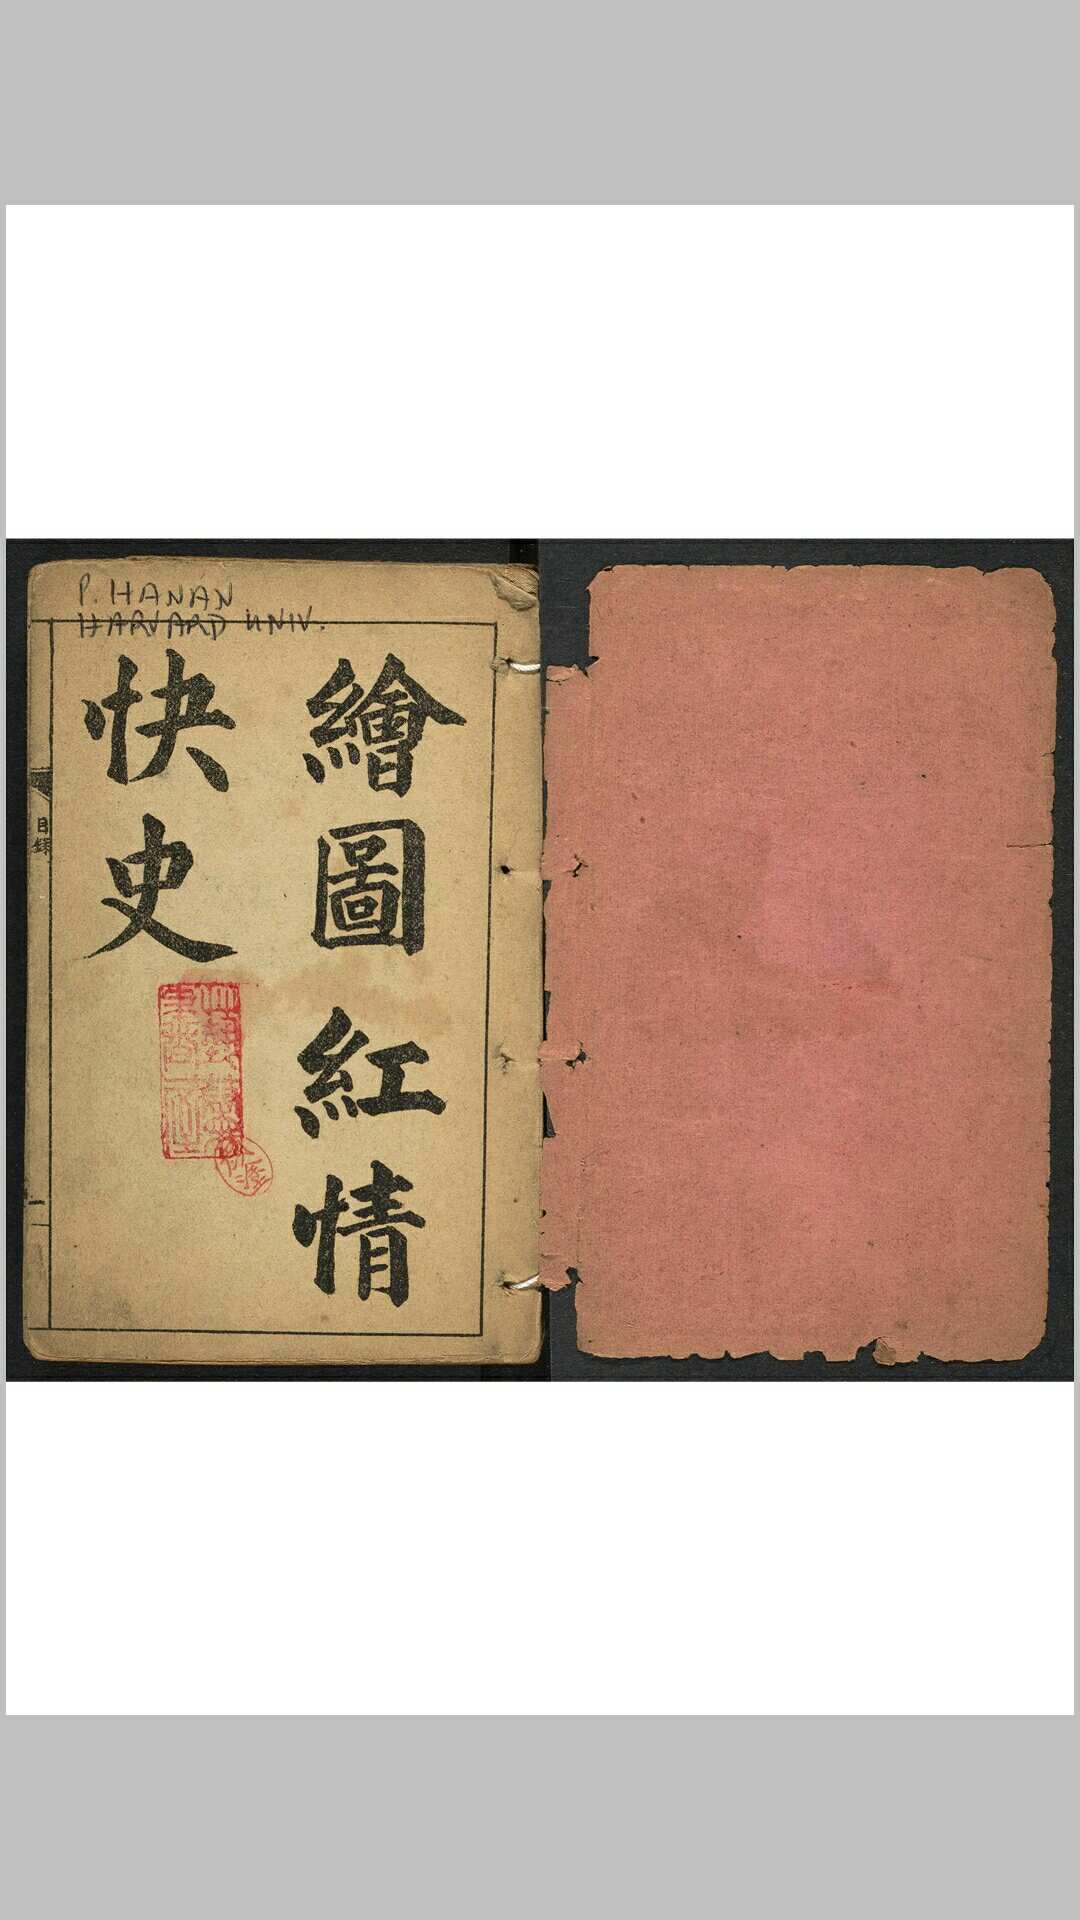 P. HANAN
HARVARD UNIV.
繪圖紅情
快史
目錄
一